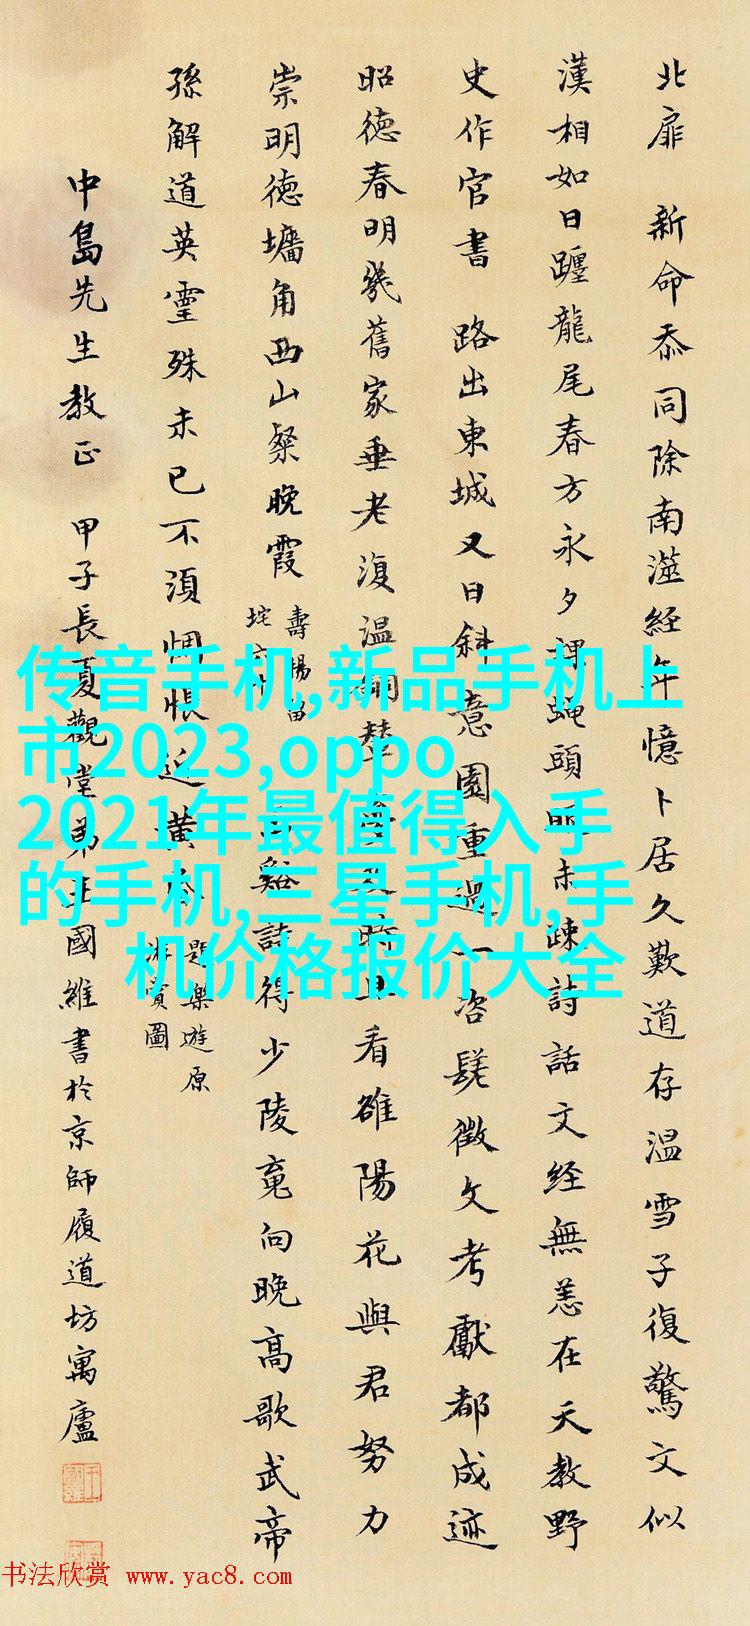 北扉　新命忝同除南澨経年憶卜居久歎道存温雪子復驚文似
漢相如日躔龍尾春方永夕 蠅頭眼未疎詩話文経無恙在天教野
史作官書　路出東城又日斜意園重過一咨嗟徵文考獻都成迹
昭德春明幾舊家垂老復温 看雒陽花與君努力
崇明德墻角西山粲晚霞
壽陽留
垞六
谿詩得少陵竟向晚高歌武帝
孫解道英靈殊未已不須惆悵近黃
題樂遊原
游賞圖
中島先生教正　甲子長夏觀堂弟王國維書於京師履道坊寓廬
传音手机,新品手机上
市2023,oppo
2021年最值得入手
的手机,三星手机,手
机价格报价大全
书法欣赏 www.yac8.com